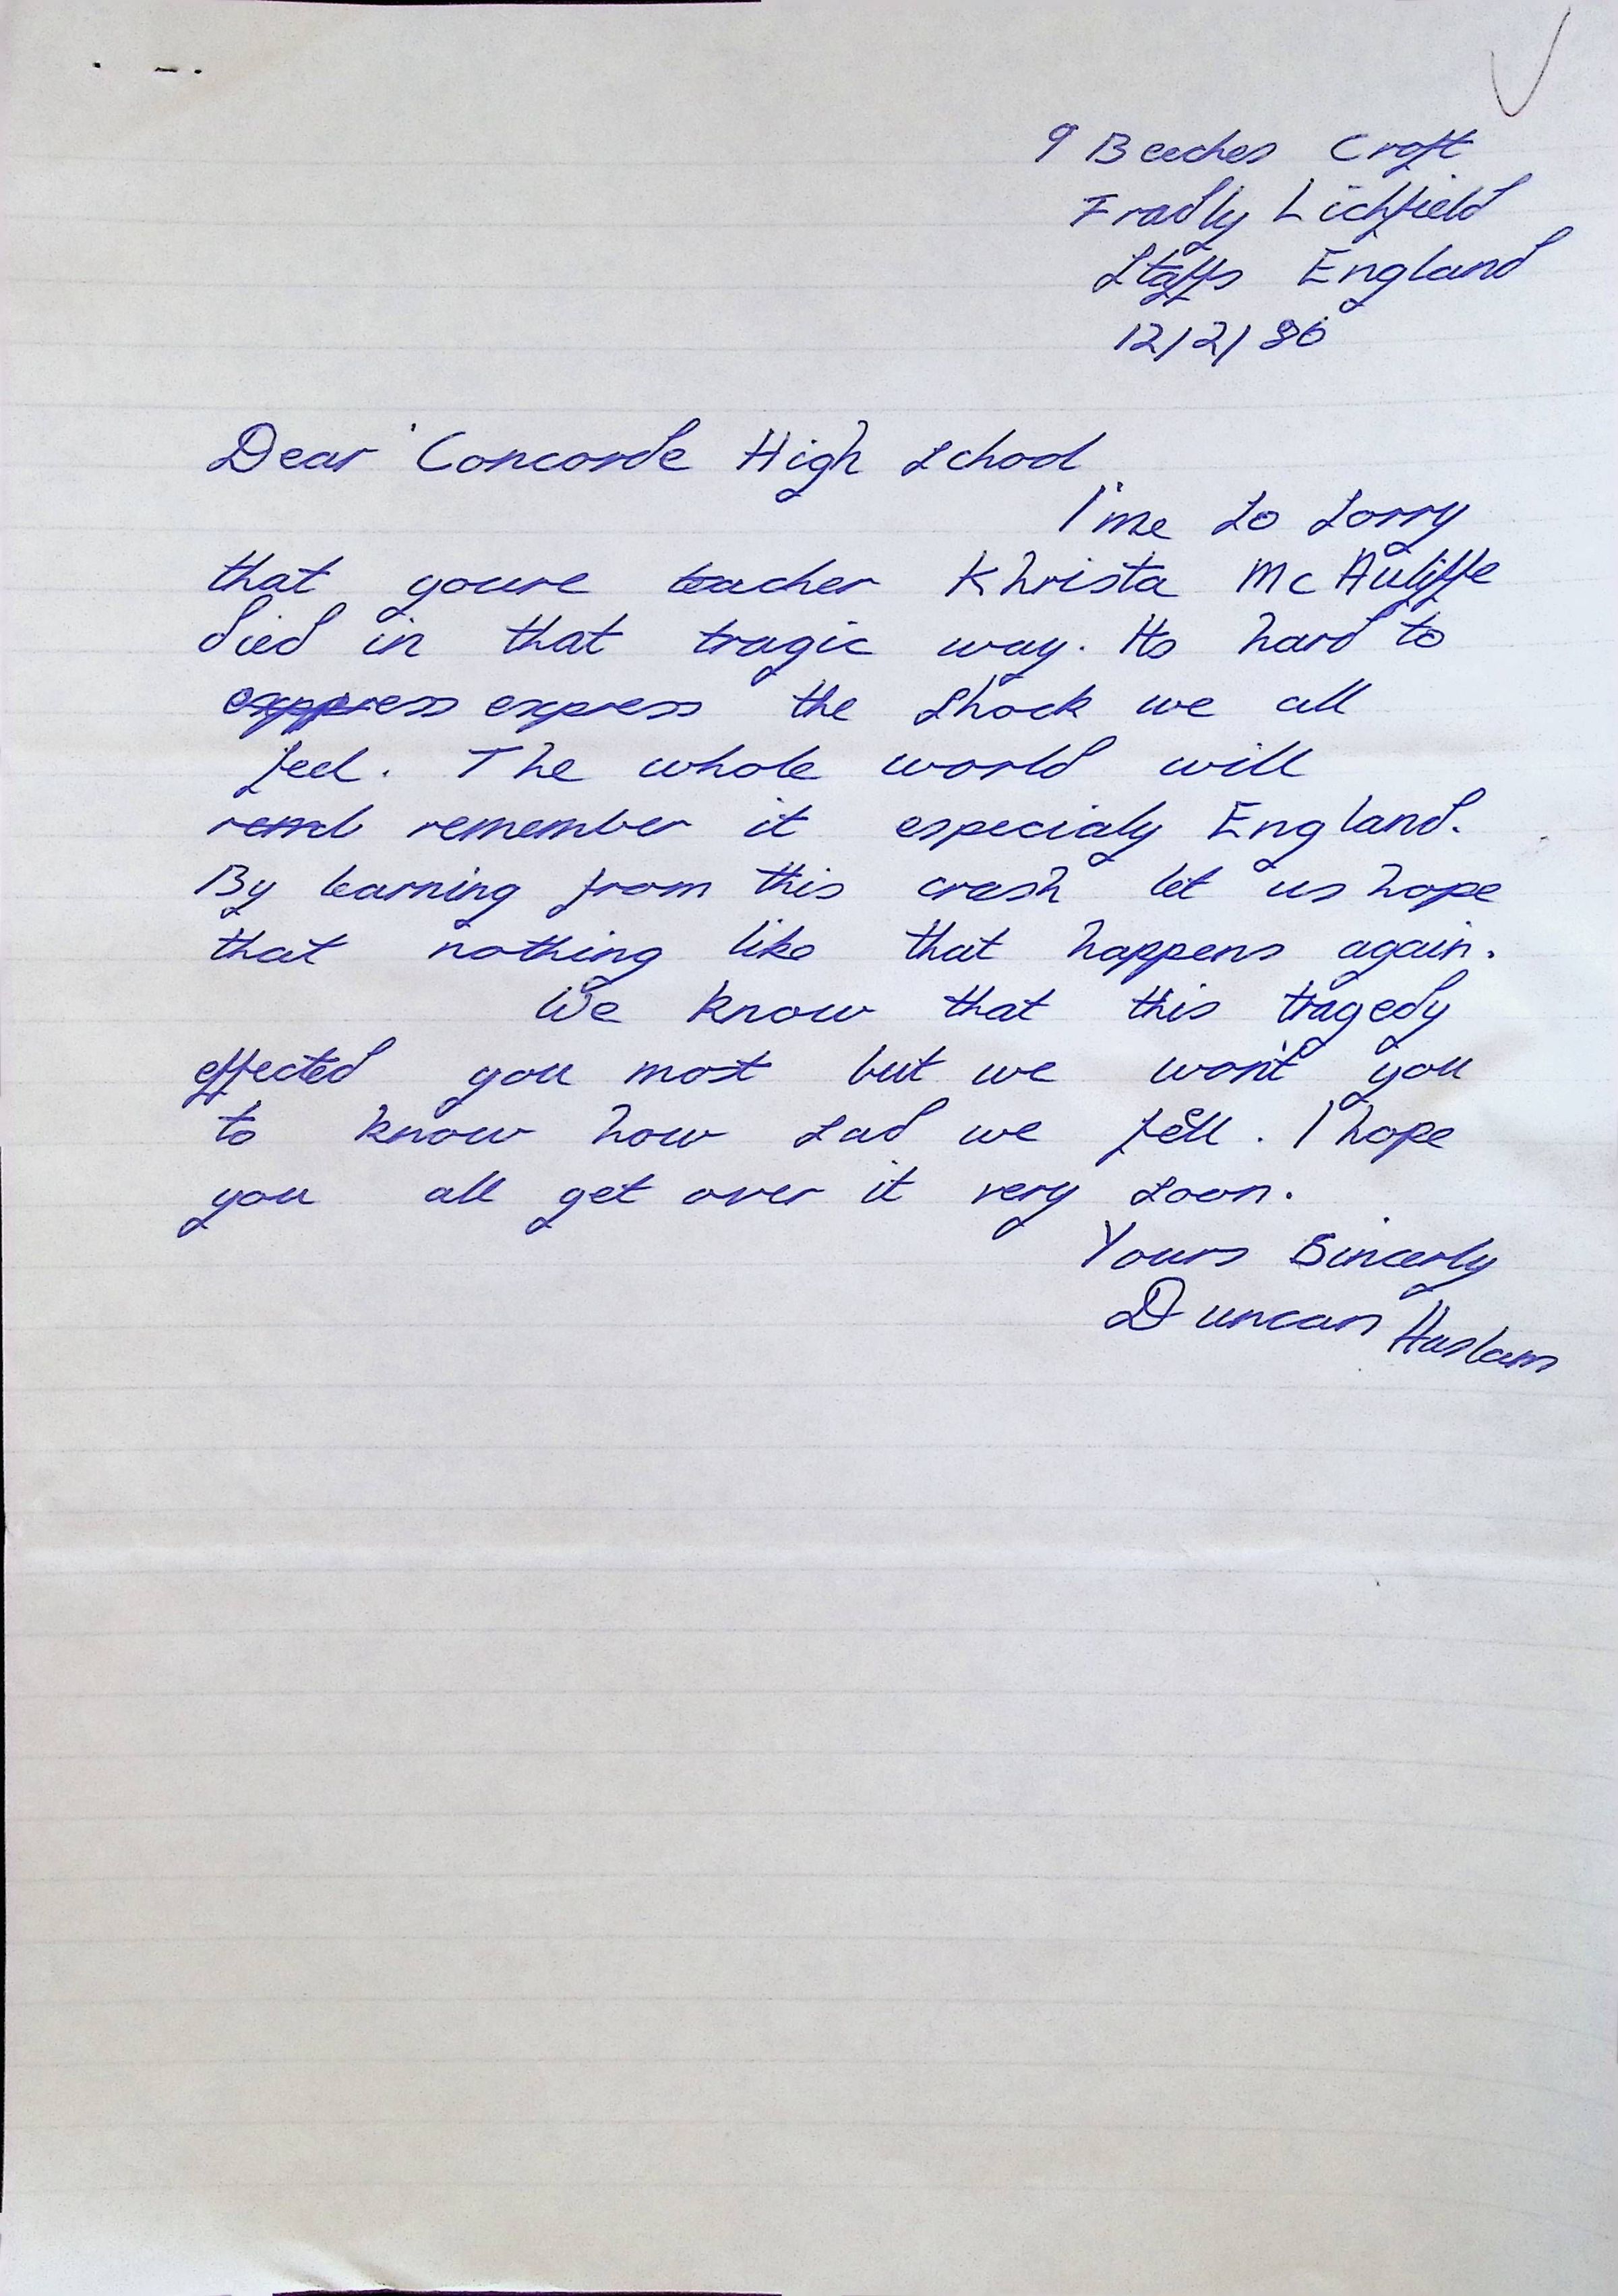 9 Beeches Croft
Fradly Lichfield
Staffs England
12/2/86
Dear Concorde High School
I'me so sorry
that youre teacher Khrista McAuliffe
died in that tragic way. Its hard to
exppress express the shock we all
feel. The whole world will
remd remember it especialy England.
By learning from this crash let us hope
that nothing like that happens again.
We know that this tragedy
effected you most but we won't you
to know how sad we fell. I hope
you all get over it very soon.
Yours Sincerly
Duncan Haslam